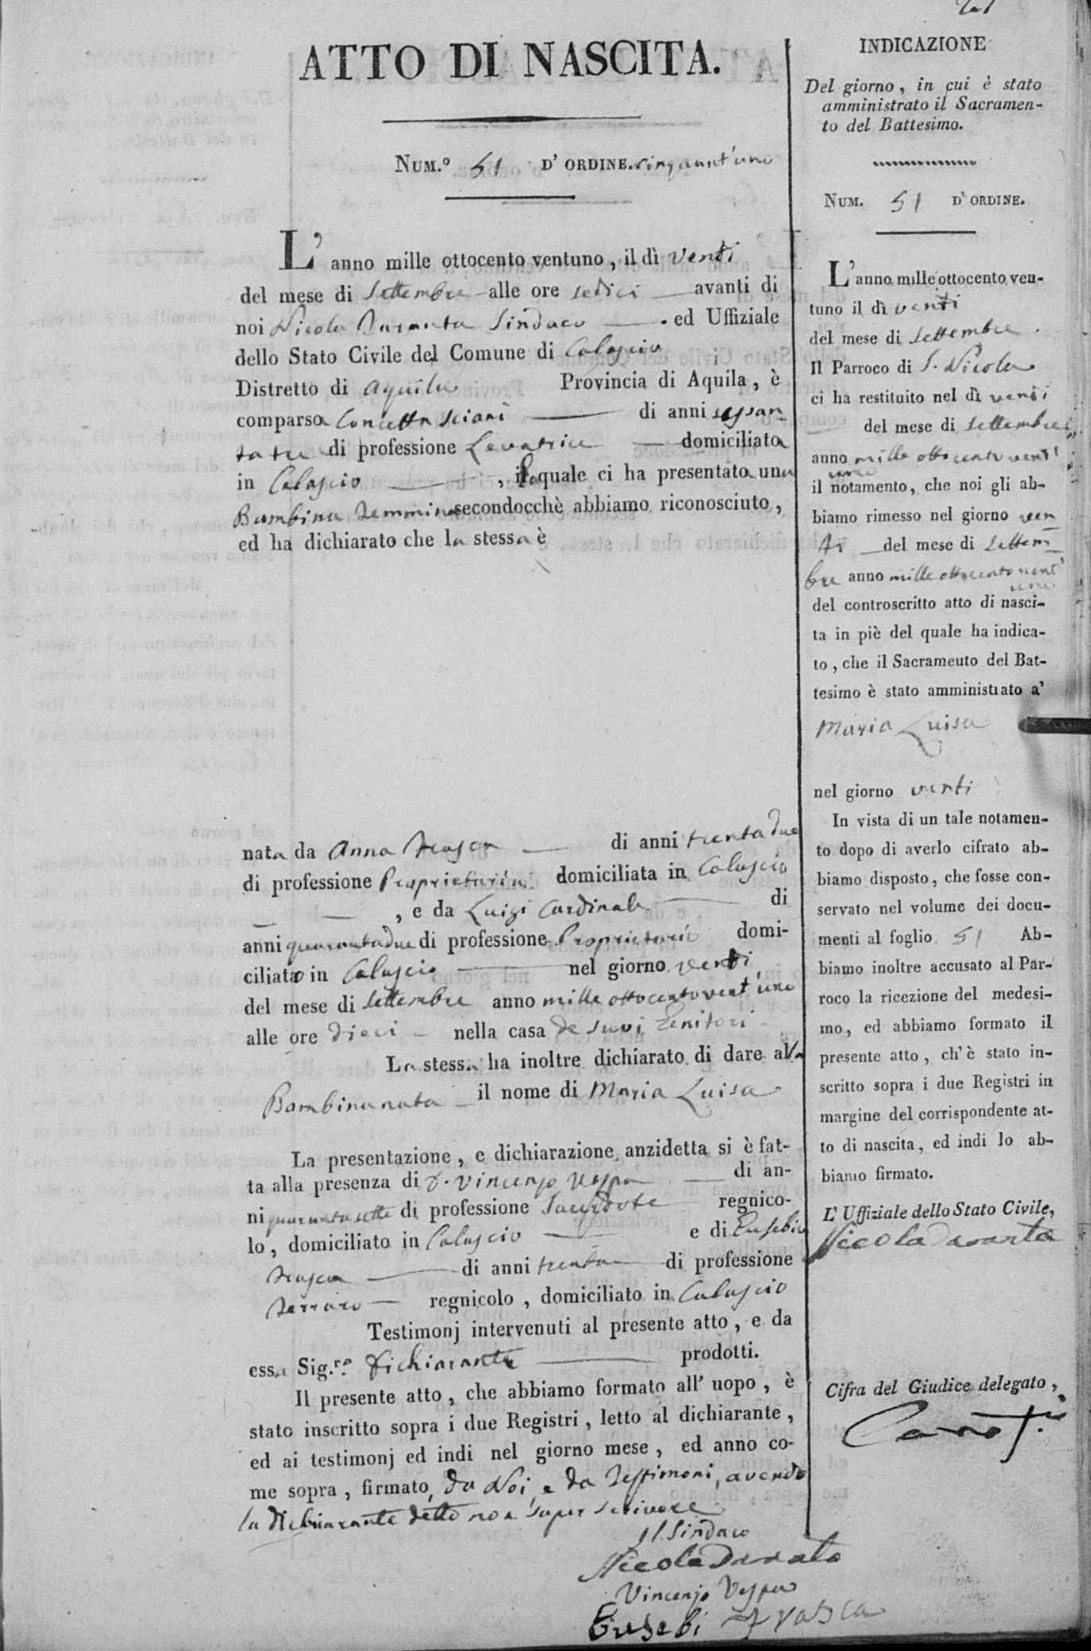 ATTO DI NASCITA.
NUM.º 51 D' ORDINE. cinquant'uno
L' anno mille ottocento ventuno, il dì venti
del mese di Settembre alle ore sedici avanti di
noi Nicola Sindaco ed Uffiziale
dello Stato Civile del Comune di Calascio
Distretto di Aquila Provincia di Aquila, è
comparsa Concetta Sciani di anni sessan
tatre di professione Levatrice domiciliata
in Calascio, la quale ci ha presentato una
Bambina Femmina secondocchè abbiamo riconosciuto,
ed ha dichiarato che la stessa è
nata da Anna Frasca di anni trentadue
di professione Proprietaria domiciliata in Calascio
, e da Luigi Cardinale di
anni quarantadue di professione Proprietario domi-
ciliato in Calascio nel giorno venti
del mese di Settembre anno mille ottocento vent'uno
alle ore dieci nella casa de suoi Genitori
La stessa ha inoltre dichiarato di dare alla
Bambina nata il nome di Maria Luisa
La presentazione, e dichiarazione anzidetta si è fat-
ta alla presenza di D. Vincenzo Vespa di an-
ni quarantasette di professione Sacerdote regnico-
lo, domiciliato in Calascio e di Eusebio
Frasca di anni trenta di professione
Ferraro regnicolo, domiciliato in Calascio
Testimonj intervenuti al presente atto, e da
essa Sig.ra dichiarante prodotti.
Il presente atto, che abbiamo formato all' uopo, è
stato inscritto sopra i due Registri, letto al dichiarante,
ed ai testimonj ed indi nel giorno mese, ed anno co-
me sopra, firmato, da Noi, e da Testimoni, avendo
la Dichiarante detto non saper scrivere
Il Sindaco
Nicola
Vincenzo Vespa
Eusebi Frasca
INDICAZIONE
Del giorno, in cui è stato
amministrato il Sacramen-
to del Battesimo.
NUM. 51 D' ORDINE.
L' anno mille ottocento ven-
tuno il dì venti
del mese di Settembre.
Il Parroco di S. Nicola
ci ha restituito nel dì venti
del mese di Settembre
anno mille ottocento vent'
uno
il notamento, che noi gli ab-
biamo rimesso nel giorno ven
ti del mese di Settem
bre anno mille ottocento vent'
uno
del controscritto atto di nasci-
ta in piè del quale ha indica-
to, che il Sacramento del Bat-
tesimo è stato amministrato a'
Maria Luisa
nel giorno venti
In vista di un tale notamen-
to dopo di averlo cifrato ab-
biamo disposto, che fosse con-
servato nel volume dei docu-
menti al foglio 51 Ab-
biamo inoltre accusato al Par-
roco la ricezione del medesi-
mo, ed abbiamo formato il
presente atto, ch' è stato in-
scritto sopra i due Registri in
margine del corrispondente at-
to di nascita, ed indi lo ab-
biamo firmato.
L' Uffiziale dello Stato Civile,
Nicola
Cifra del Giudice delegato,